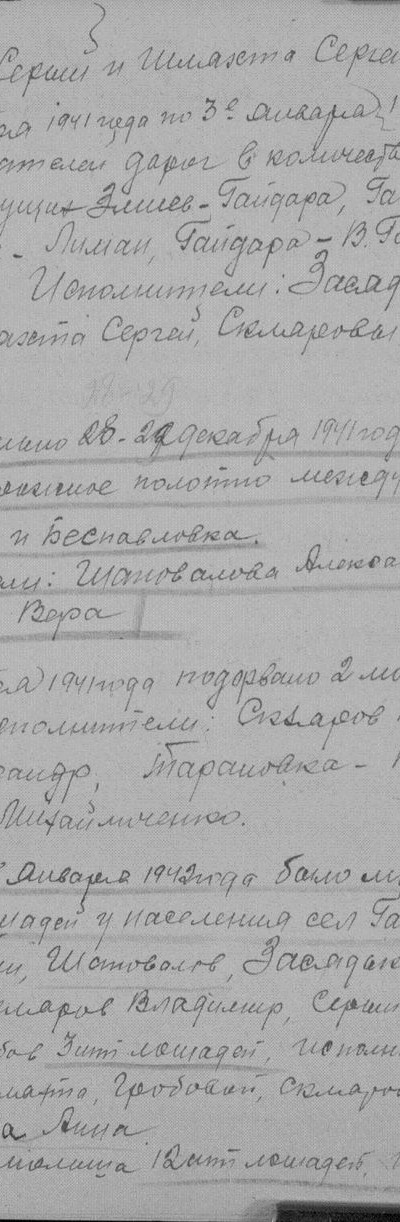 Серый и Шляхта Серге
ря 1941 года по 3е января
ателей дорог в количеств
ущих Змиев-Гайдара, Га
- Лиман, Гайдара - В. Га
Исполнители: Засяд
яхта Сергей, Скляровы
28-29
28-29 декабря 1941 год
рожное полотно между
и Беспаловка.
ели: Шаповалова Алекса
Вера
ря 1941 года подорвано 2 м
сполнители: Скляров
сандр, Тарановка -
Михайличенко.
января 1942 года было
шадей у населения сел Га
Шаповалов, Засядьк
кляров Владимир, Серый
бов 3 шт лошадей, исполн
ляхта, Гробовой, Скляро
а Анна
12 шт лошадей,